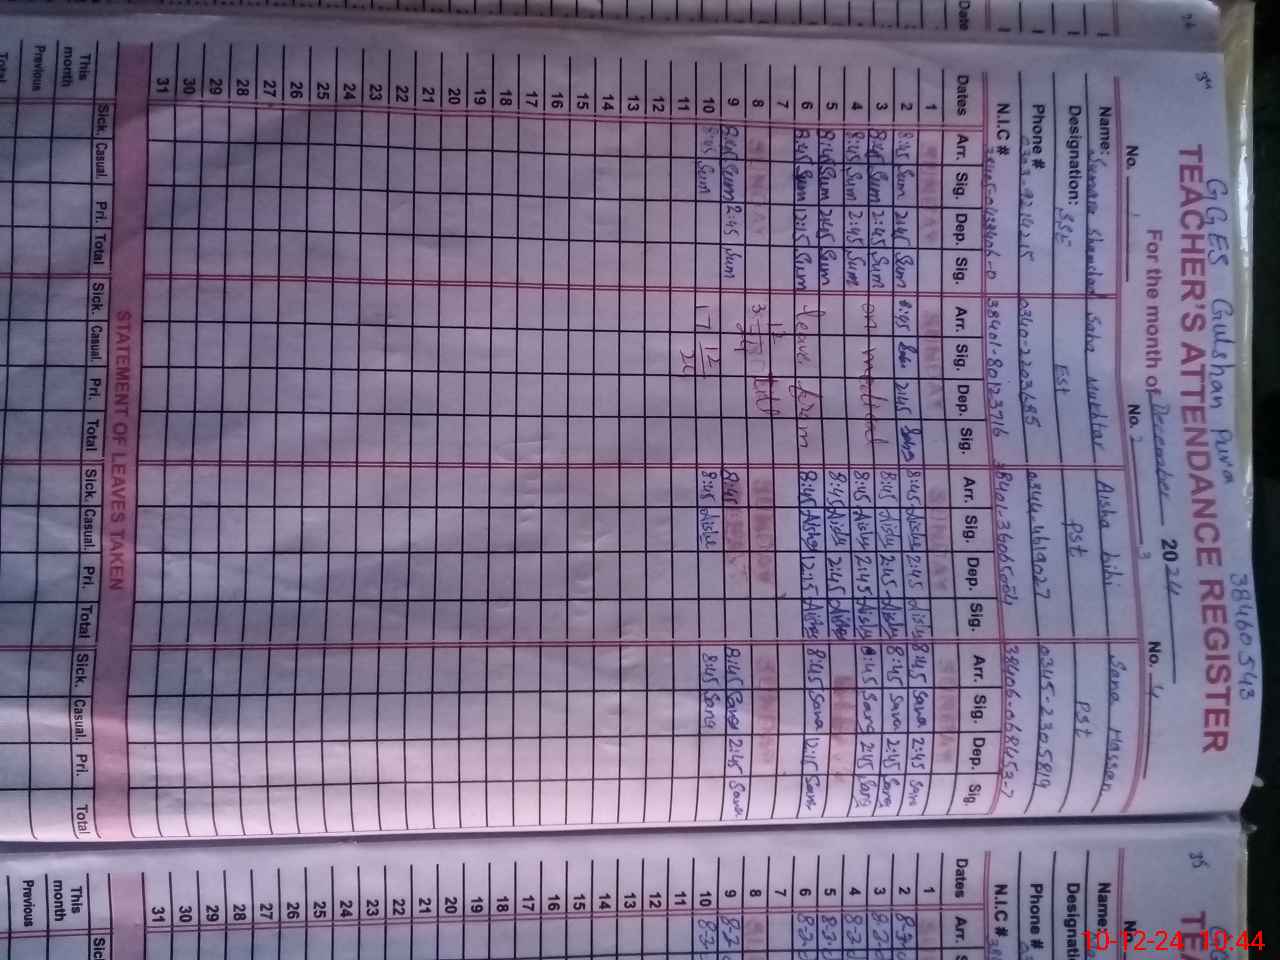 GGES Gulshan Pura 38460543
TEACHER'S ATTENDANCE REGISTER
For the month of December 2024
No. 1 No. 2 3 No. 4
Name: Sumaira Shamshad Saba Mukhtar Aisha bibi Sana Hassan
Designation: SSE Est PSt PSt
Phone # 0340-2203685 0344-4619027 0345-2305819
N.I.C #
Dates Arr. Sig. Dep. Sig. Arr. Sig. Dep. Sig. Arr. Sig. Dep. Sig. Arr. Sig. Dep. Sig.
1 SUNDAY SUNDAY SUNDAY SUNDAY
2 8:45 Sum 2:45 Sum 8:45 Saba 2:45 Saba 8:45 Aisha 2:45 Aisha 8:45 Sana 2:45 Sana
3 8:45 Sum 2:45 Sum on medical 8:45 Aisha 2:45 Aisha 8:45 Sana 2:45 Sana
4 8:45 Sum 2:45 Sum 8:45 Aisha 2:45 Aisha 8:45 Sana 2:45 Sana
5 8:45 Sum 2:45 Sum 8:45 Aisha 2:45 Aisha
6 8:45 Sum 12:15 Sum leave from 8:45 Aisha 12:15 Aisha 8:45 Sana 12:15 Sana
7
8 SUNDAY till SUNDAY SUNDAY
9 8:45 Sum 2:45 Sum 8:45 8:45 Sana 2:45 Sana
10 8:45 Sum 17 12 24 8:45 Aisha 8:45 Sana
11
12
13
14
15
16
17
18
19
20
21
22
23
24
25
26
27
28
29
30
31
STATEMENT OF LEAVES TAKEN
Sick. Casual. Pri. Total Sick. Casual. Pri. Total Sick. Casual. Pri. Total Sick. Casual. Pri. Total
This month
Previous
Total
35
Name:
Phone #
N.I.C #
Dates Arr.
1
2
3
4
5
6
7
8
9
10
11
12
13
14
15
16
17
18
19
20
21
22
23
24
25
26
27
28
29
30
31
This month
Previous
10-12-24 10:44